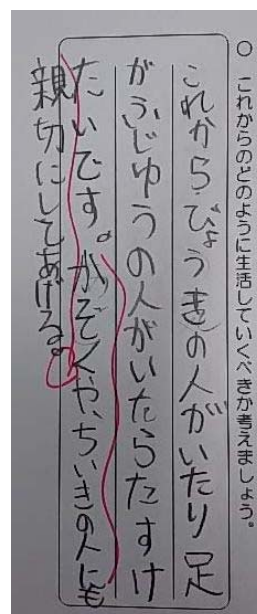 ○ これからのどのように生活していくべきか考えましょう。
これからびょうきの人がいたり足
がふじゆうの人がいたらたすけ
たいです。かぞくや、ちいきの人にも
親切にしてあげる。